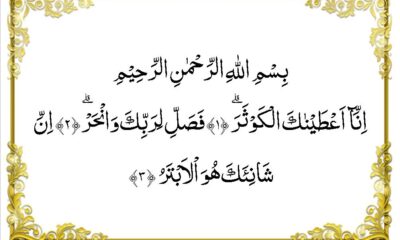 بِسْمِ اللهِ الرَّحْمٰنِ الرَّحِيْمِ
اِنَّآ اَعْطَيْنٰكَ الْكَوْثَرَۗ ﴿١﴾ فَصَلِّ لِرَبِّكَ وَانْحَرْۗ ﴿٢﴾ اِنَّ
شَانِئَكَ هُوَ الْاَبْتَرُ ﴿٣﴾